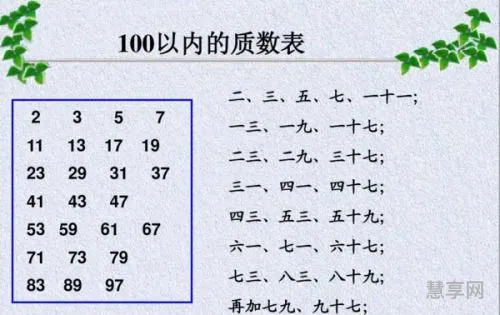 100以内的质数表
2 3 5 7
11 13 17 19
23 29 31 37
41 43 47
53 59 61 67
71 73 79
83 89 97
二、三、五、七、一十一;
一三、一九、一十七;
二三、二九、三十七;
三一、四一、四十七;
四三、五三、五十九;
六一、七一、六十七;
七三、八三、八十九;
再加七九、九十七;
慧享网